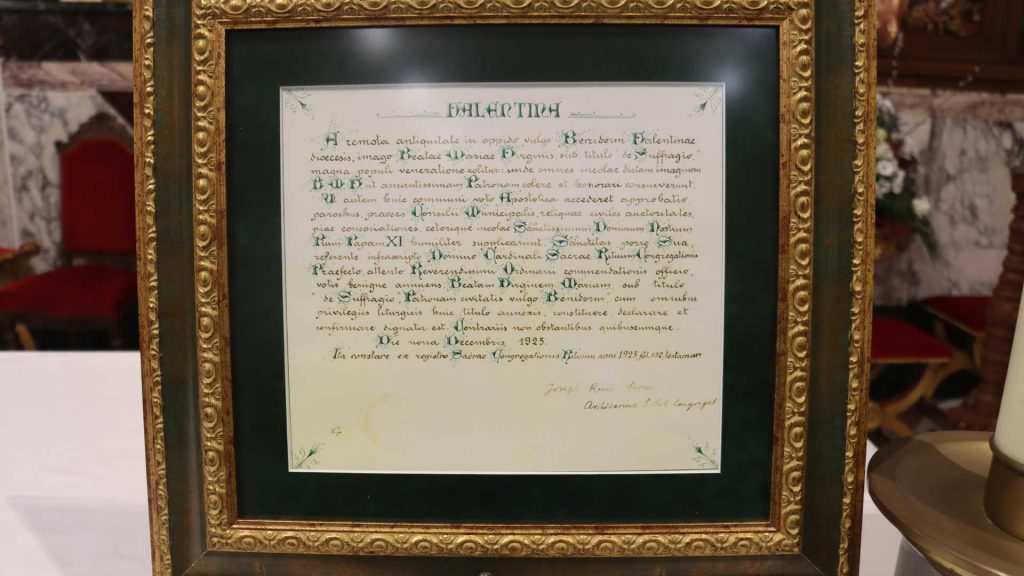 VALENTINA
A remota antiquitate in oppido vulgo Benidorm Valentinae
dioecesis, imago Beatae Mariae Virginis, sub titulo "de Suffragio,"
magna populi veneratione colitur: unde omnes incolae dictam imaginem
B. M. V. ut amantissimam Patronam colere et honorari consueverunt.
Ut autem huic communi voto Apostolica accederet approbatio,
parochus, praeses Consilii Municipalis, reliquae civiles auctoritates,
piae consociationes, ceterique incolae Sanctissimum Dominum Nostrum
Pium Papam XI humiliter supplicarunt. Sanctitas porro Sua,
referente infrascripto Domino Cardinali Sacrae Rituum Congregationis
Praefecto, attento Reverendissimi Ordinarii commendationis officio,
votis benigne annuens, Beatam Virginem Mariam, sub titulo
"de Suffragio", Patronam civitatis vulgo "Benidorm", cum omnibus
privilegiis liturgicis huic titulo annexis, constituere, declarare et
confirmare dignata est. Contrariis non obstantibus quibuscumque.
Die nona Decembris 1925.
Ita constare ex registro Sacrae Congregationis Rituum anni 1925, fol. 102, testamur.
Joseph Rius
Archivarius S. Rit. Congregat.